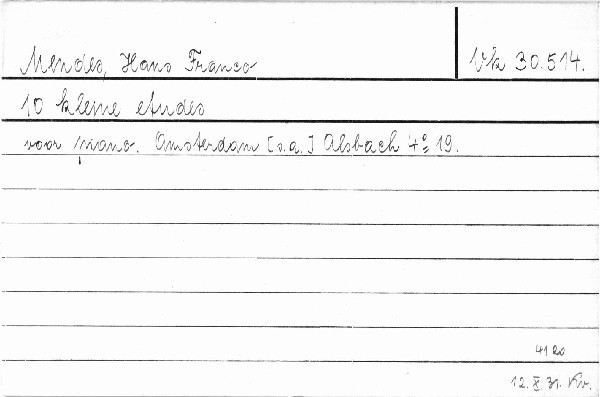 Mendes, Hans Franco
Vk 30.514.
10 kleine etudes
voor piano. Amsterdam [s.a.] Alsbach 4° 19.
4120
12. X. 31. Kv.